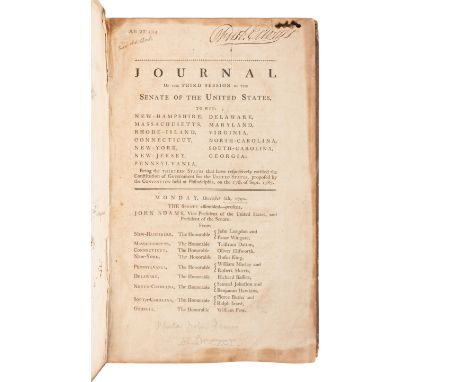 JOURNAL
OF THE THIRD SESSION OF THE
SENATE OF THE UNITED STATES,
TO WIT,
NEW-HAMPSHIRE, DELAWARE,
MASSACHUSETTS, MARYLAND,
RHODE-ISLAND, VIRGINIA,
CONNECTICUT, NORTH-CAROLINA,
NEW-YORK, SOUTH-CAROLINA,
NEW-JERSEY, GEORGIA:
PENNSYLVANIA,
Being the THIRTEEN STATES that have respectively ratified the
Constitution of Government for the UNITED STATES, proposed by
the CONVENTION held at Philadelphia, on the 17th of Sept. 1787.
MONDAY, December 6th, 1790.
THE SENATE assembled—present,
JOHN ADAMS, Vice-President of the United States, and
President of the Senate.
From
NEW-HAMPSHIRE, The Honorable John Langdon and
Paine Wingate,
MASSACHUSETTS, The Honorable Tristram Dalton,
CONNECTICUT, The Honorable Oliver Ellsworth,
NEW-YORK, The Honorable Rufus King,
PENNSYLVANIA, The Honorable William Maclay and
Robert Morris,
DELAWARE, The Honorable Richard Bassett,
NORTH-CAROLINA, The Honorable Samuel Johnston and
Benjamin Hawkins,
SOUTH-CAROLINA, The Honorable Pierce Butler and
Ralph Izard,
GEORGIA, The Honorable William Few.